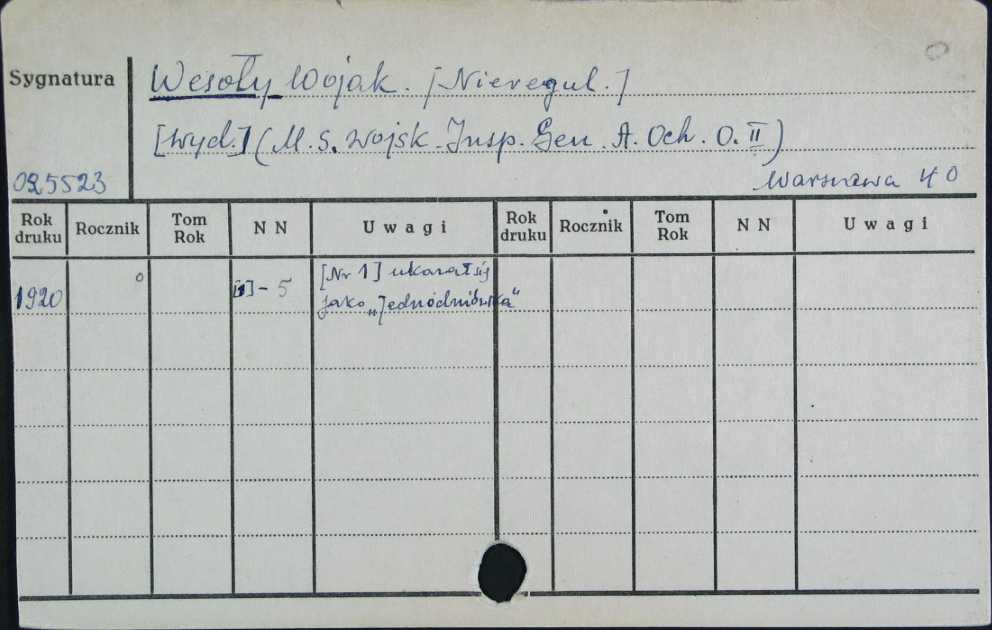 Sygnatura
Wesoły Wojak. [Nieregul.]
[wyd.] (M. S. Wojsk. Insp. Gen. A. Och. O. II)
025523
Warszawa 4 0
Rok druku Rocznik Tom Rok N N Uwagi Rok druku Rocznik Tom Rok N N Uwagi
1920 0 [1] - 5 [Nr 1] ukazał się
jako „Jednodniówka"